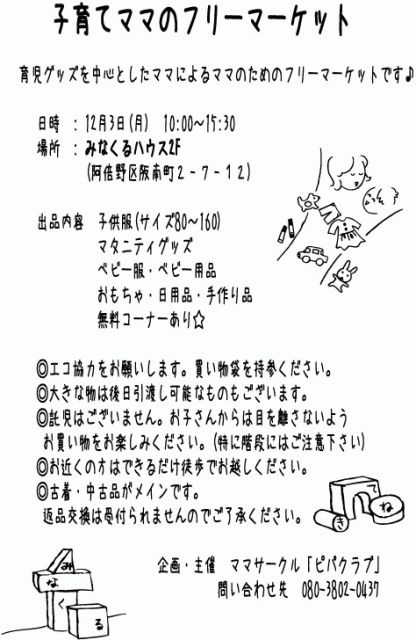 子育てママのフリーマーケット
育児グッズを中心としたママによるママのためのフリーマーケットです♪
日時 : 12月3日(月) 10:00~15:30
場所 : みなくるハウス2F
(阿倍野区阪南町2-7-12)
出品内容 子供服(サイズ80~160)
マタニティグッズ
ベビー服・ベビー用品
おもちゃ・日用品・手作り品
無料コーナーあり☆
◎エコ協力をお願いします。買い物袋を持参ください。
◎大きな物は後日引渡し可能なものもございます。
◎託児はございません。お子さんからは目を離さないよう
お買い物をお楽しみください。(特に階段にはご注意下さい)
◎お近くの方はできるだけ徒歩でお越しください。
◎古着・中古品がメインです。
返品交換は受付られませんのでご了承ください。
てねき
企画・主催 ママサークル「ピパクラブ」
問い合わせ先 080-3802-0437
みなくる